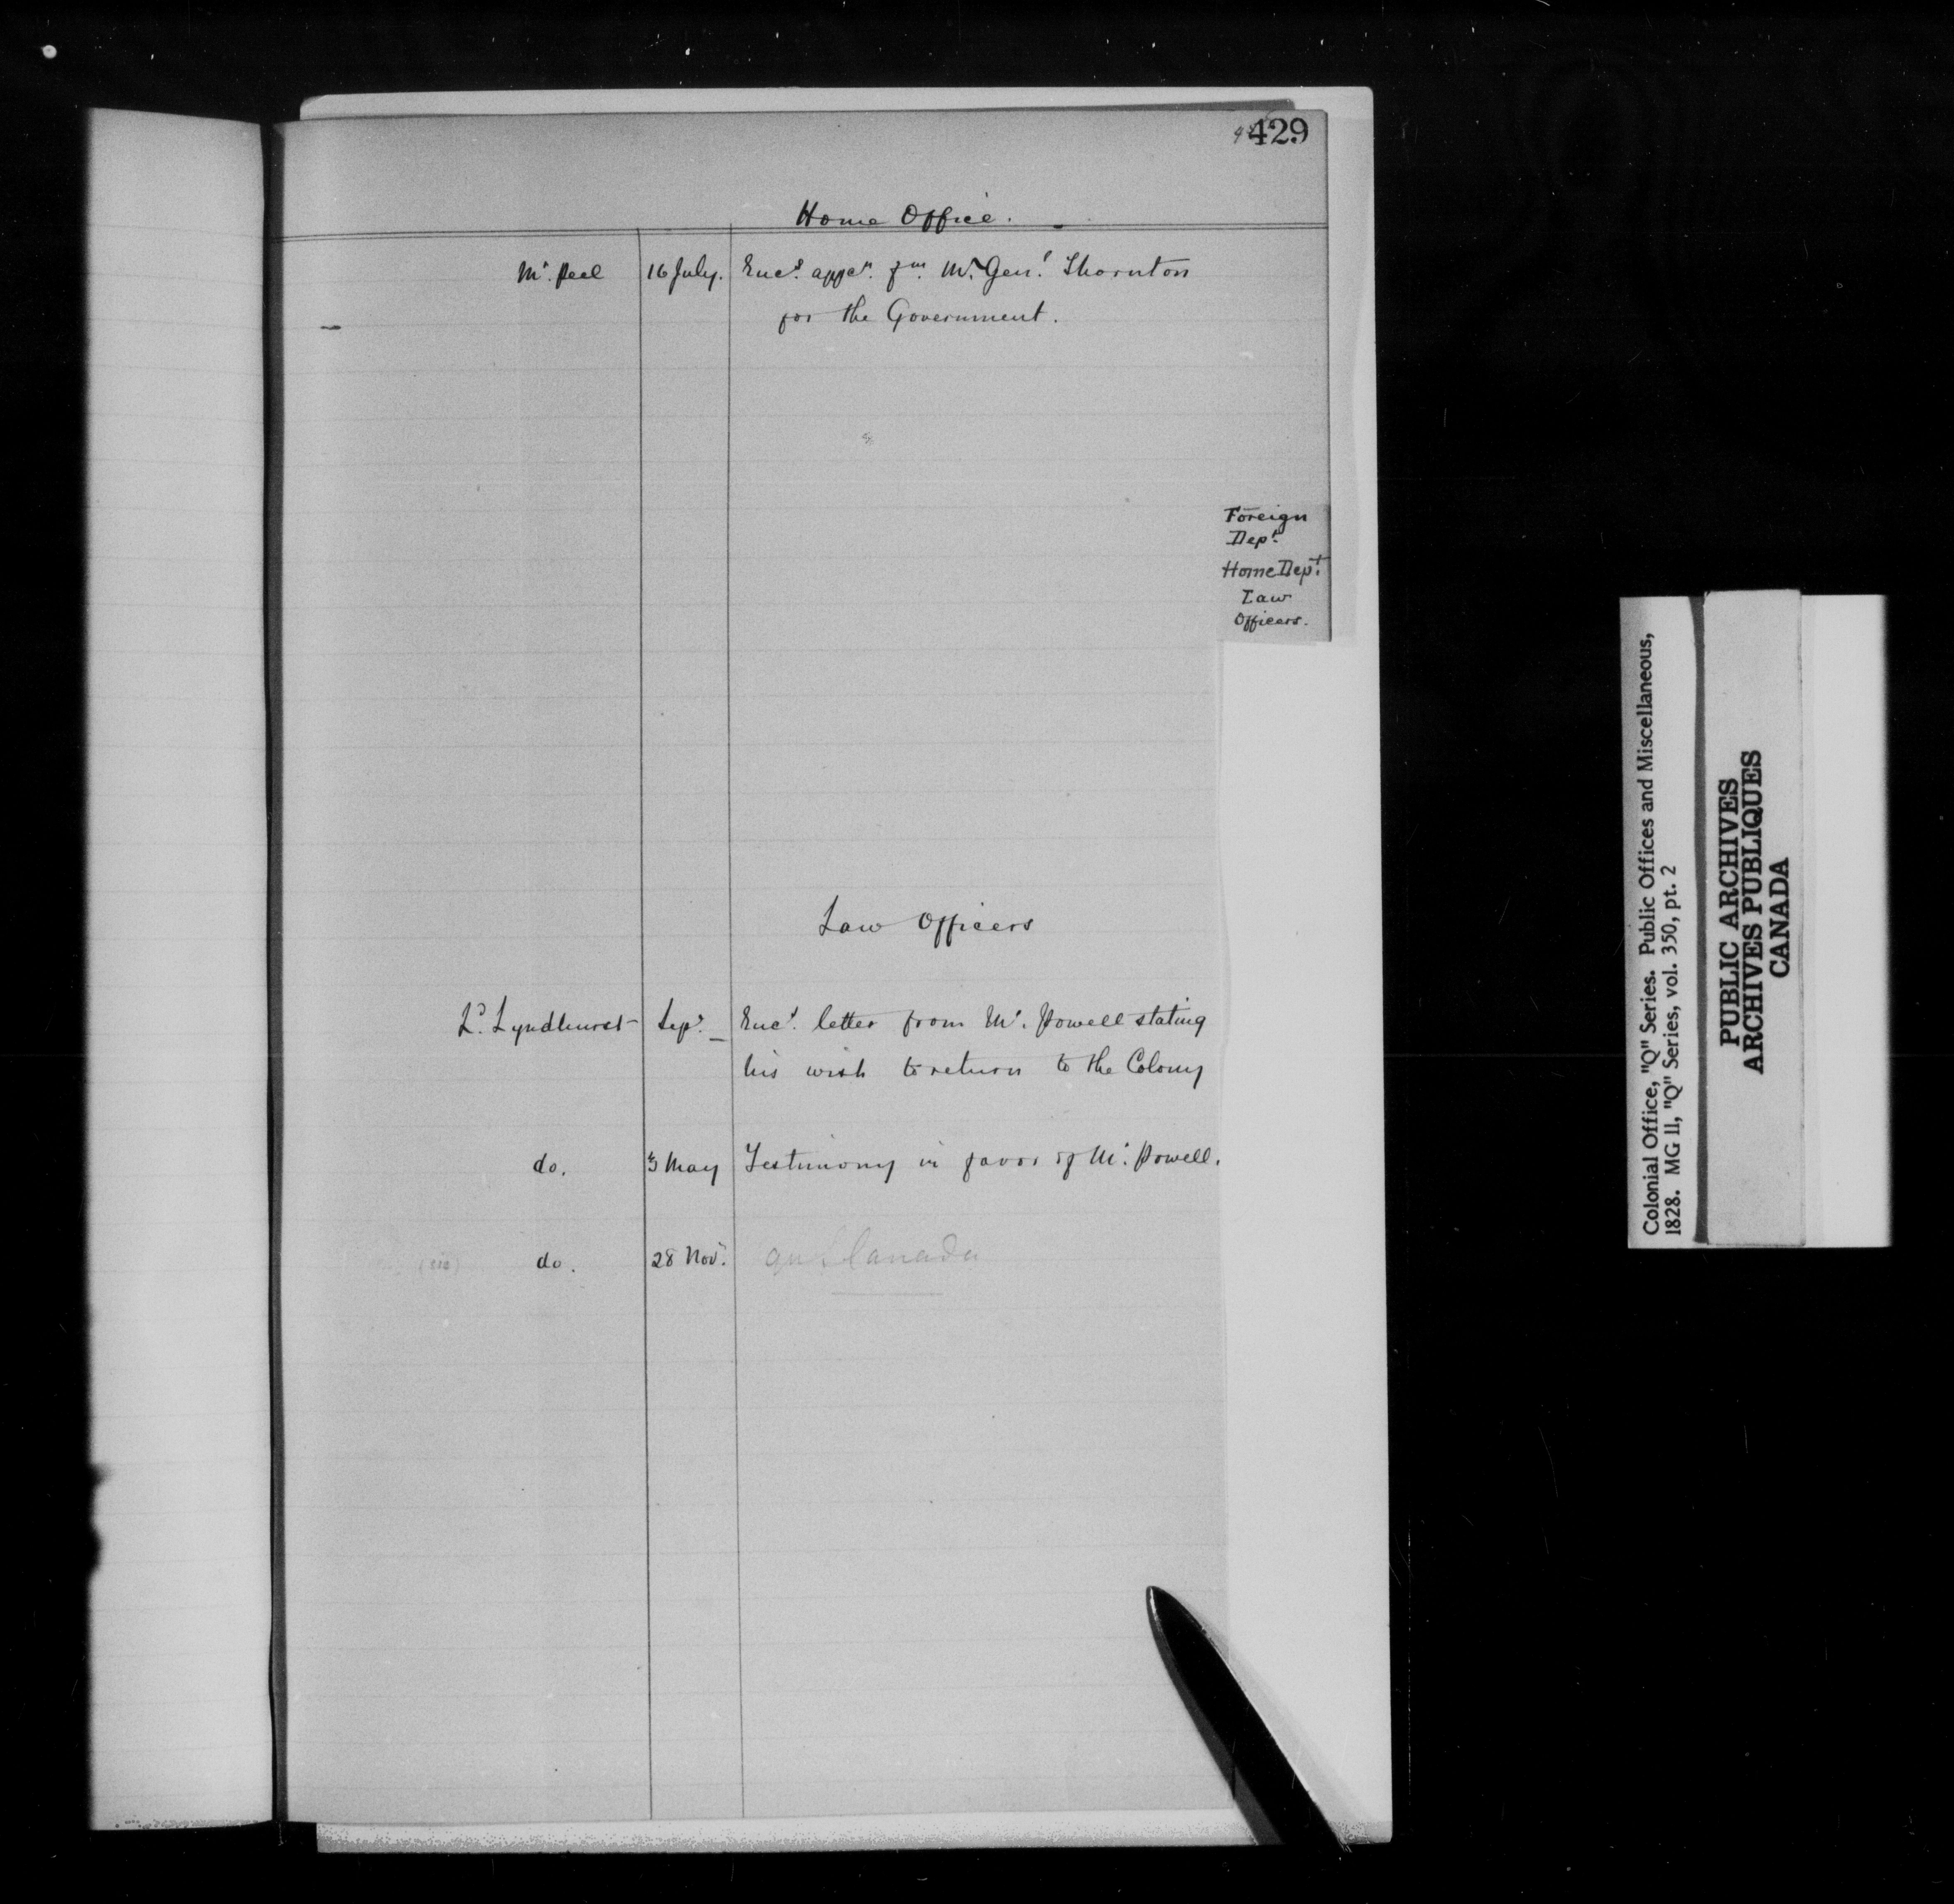 429
Home Office.
Mr. Peel 16 July. Encs. appcn. fm. M. Genl. Thornton
for the Government.
Foreign
Dept.
Home Dept.
Law
Officers.
Law Officers
Ld. Lyndhurst Sepr. Encs. letter from Mr. Powell stating
his wish to return to the Colony
do. 3 May Testimony in favor of Mr. Powell.
(sic) do. 28 Novr. Canada
Colonial Office, "Q" Series. Public Offices and Miscellaneous,
1828. MG 11, "Q" Series, vol. 350, pt. 2
PUBLIC ARCHIVES
ARCHIVES PUBLIQUES
CANADA